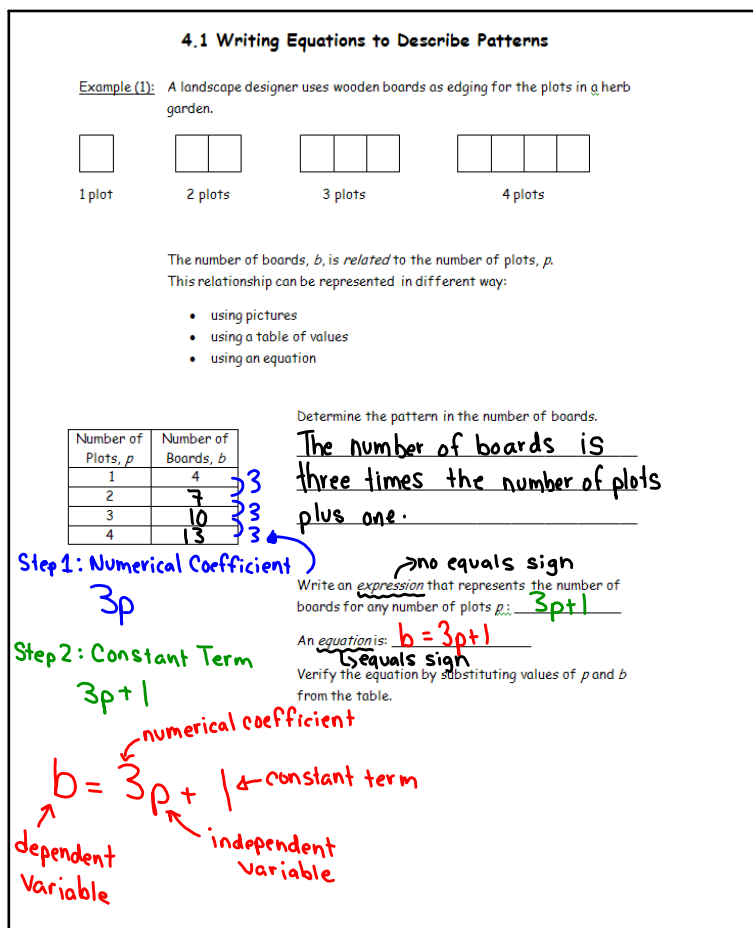 4.1 Writing Equations to Describe Patterns
Example (1): A landscape designer uses wooden boards as edging for the plots in a herb
garden.
1 plot 2 plots 3 plots 4 plots
The number of boards, b, is related to the number of plots, p.
This relationship can be represented in different way:
• using pictures
• using a table of values
• using an equation
Number of Plots, p Number of Boards, b
1 4
2 7
3 10
4 13
3
3
3
Step 1: Numerical Coefficient
3p
Step 2: Constant Term
3p+1
Determine the pattern in the number of boards.
The number of boards is
three times the number of plots
plus one.
no equals sign
Write an expression that represents the number of
boards for any number of plots p: 3p+1
An equation is: b = 3p+1
equals sign
Verify the equation by substituting values of p and b
from the table.
numerical coefficient
b = 3p + 1 constant term
dependent variable
independent variable